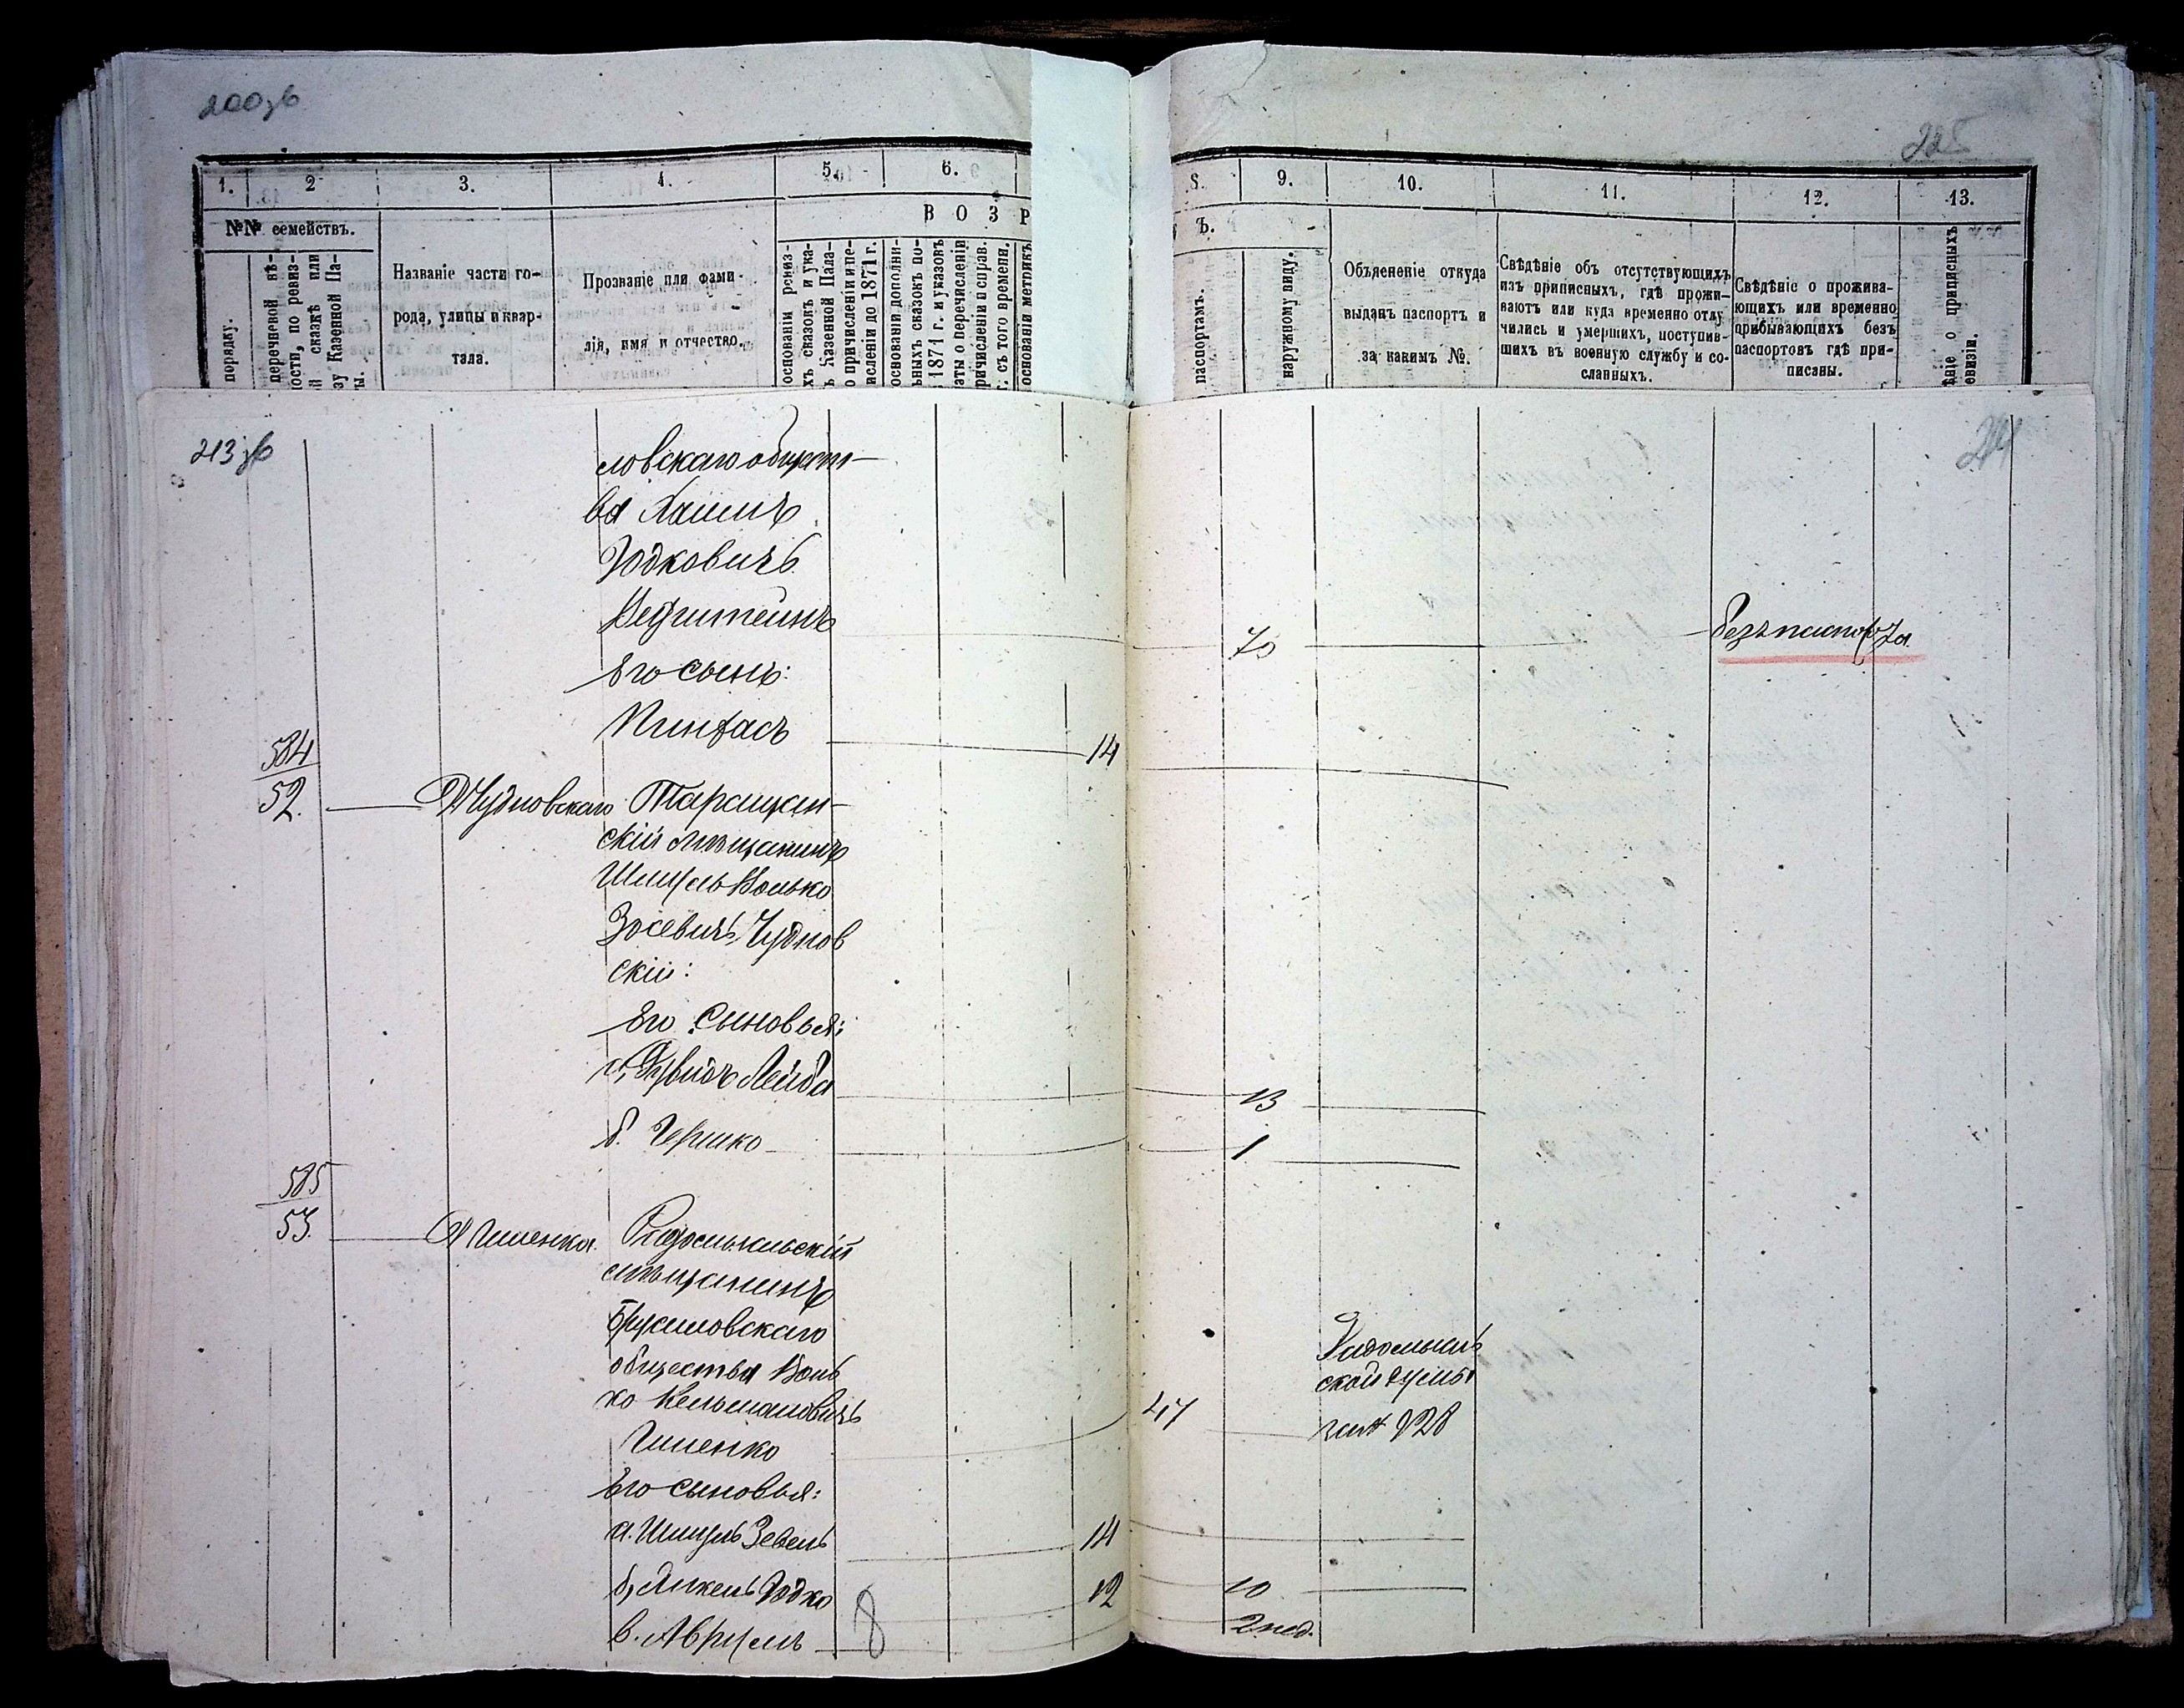 200зв
225
1. 2 3. 4. 5. 6.
8. 9. 10. 11. 12. 13.
В О З Р
Ъ.
№№ семействъ.
порядку.
перечневой вѣ-
ости, по ревиз-
й сказкѣ или
зу Казенной Па-
ты.
Названіе части го-
рода, улицы и квар-
тала.
Прозваніе или фами-
лія, имя и отчество.
основаніи ревиз-
хъ сказокъ и ука-
ъ Казенной Пала-
о причисленіи и пе-
исленіи до 1871 г.
основаніи дополни-
ьныхъ сказокъ по-
1871 г. и указовъ
аты о перечисленіи
ричисленіи и справ.
г. съ того времени.
основаніи метрикъ
паспортамъ.
наружному виду.
Объясненіе откуда
выданъ паспортъ и
за какимъ №.
Свѣдѣніе объ отсутствующихъ
изъ приписныхъ, гдѣ прожи-
ваютъ или куда временно отлу
чились и умершихъ, поступив-
шихъ въ военную службу и со-
сланныхъ.
Свѣдѣніе о прожива-
ющихъ или временно
прибывающихъ безъ
паспортовъ гдѣ при-
писаны.
ѣніе о приписныхъ
евизіи.
213зв
214
ловскаго общест-
ва Хаимъ
Іодковичъ
Его сынъ:
Пинхасъ 14
безъ паспорта
584
52. Д Чудновскаго Таращан-
скій мѣщанинъ
Шмуль Волько
Зосевичъ Чуднов
скій:
Его сыновья:
а, Дувидъ Лейба 13
б. Гершко 1
585
53. Д Гименка. Радомысльскій
мѣщанинъ
Брусиловскаго
общества Воль
ко Кельмановичъ 47
Гименко
Радомысль
ской думы
за № 928
Его сыновья:
а. Шмуль Зевель 14
б, Янкель Іодко 12 10
в. Аврумъ 2 нед.
8